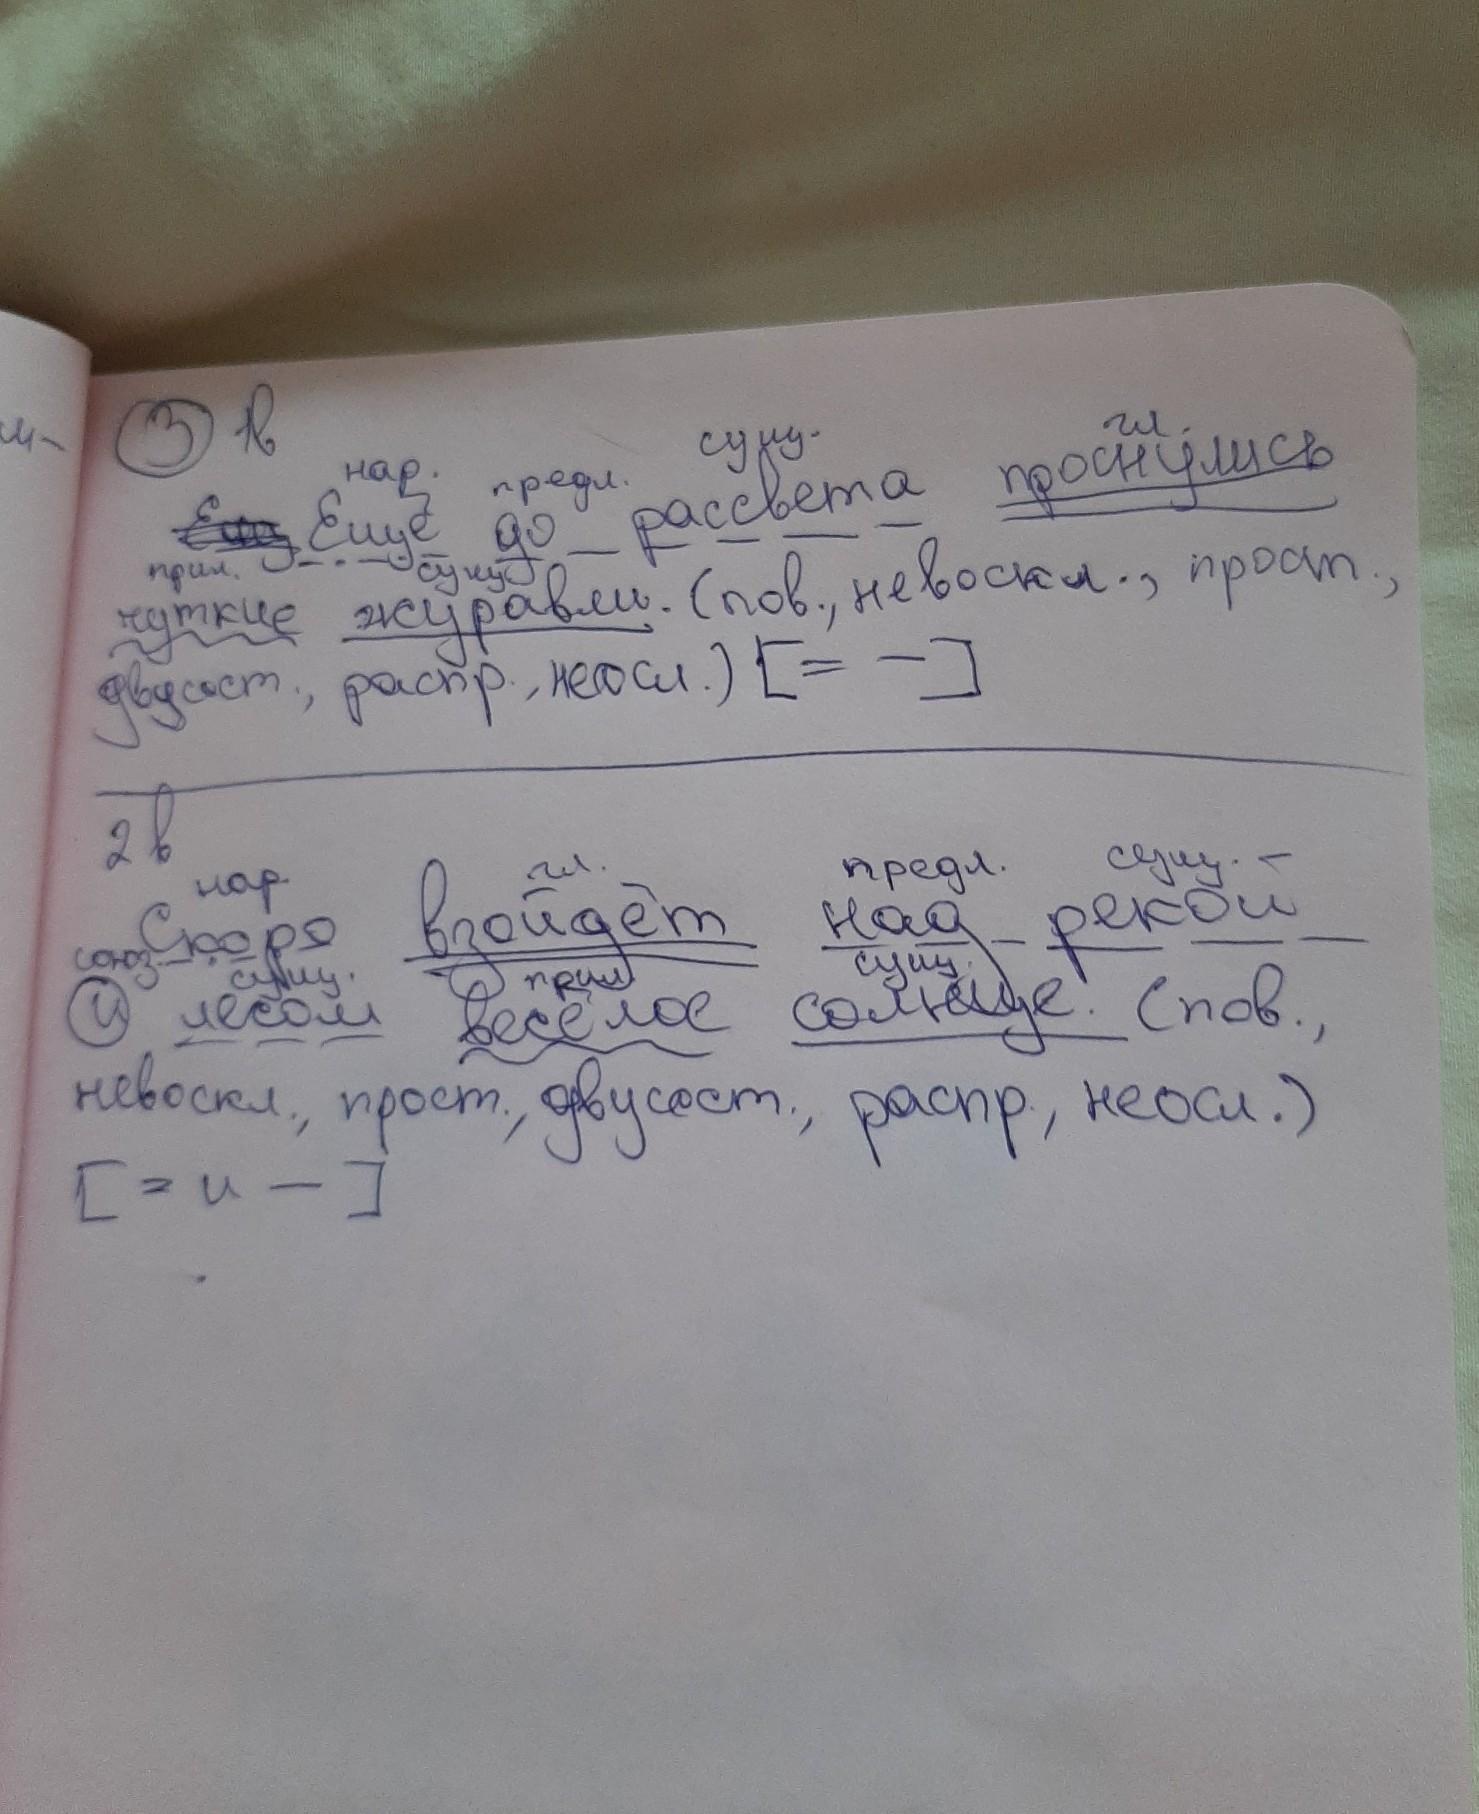 м-
③ 1в
нар. предл. сущ. гл.
Ещё до рассвета проснулись
прил. сущ.
чуткие журавли. (пов., невоскл., прост.,
двусост., распр., неосл.) [= —]
2в
нар. гл. предл. сущ.
Скоро взойдёт над рекой
союз. сущ. прил. сущ.
и лесом весёлое солнце. (пов.,
невоскл., прост., двусост., распр., неосл.)
[= и —]